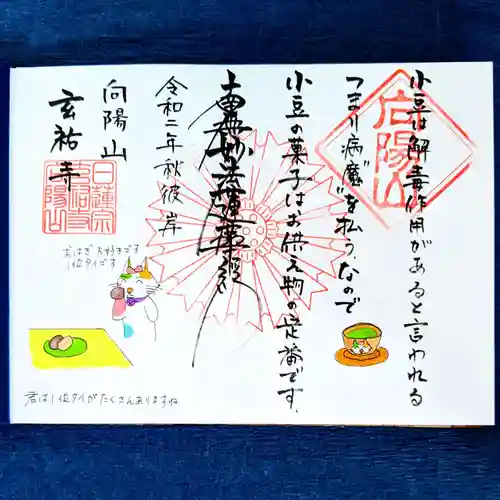 小豆は解毒作用があると言われる
つまり病魔”を払う、なので
小豆の菓子はお供え物の定番です。
南無妙法蓮華経
令和二年秋彼岸
向陽山
玄祐寺
向陽山
日蓮宗
玄祐寺
向陽山
おはぎ大好きです
1位タイです
君は1位タイがたくさんありますね